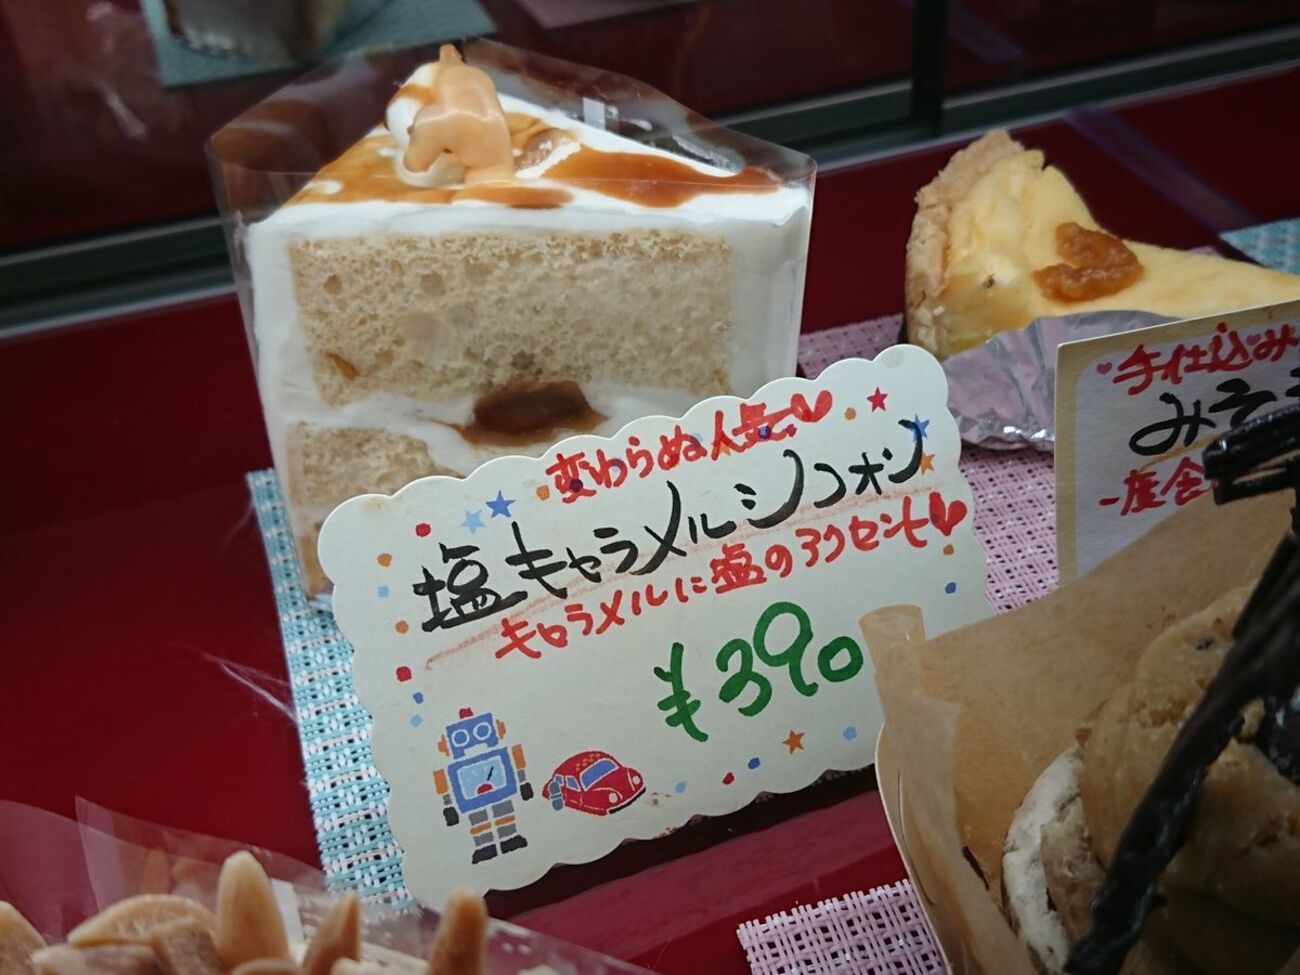 変わらぬ人気♥
塩キャラメルシフォン
キャラメルに塩のアクセント♥
¥390
♥手仕込み
みそ